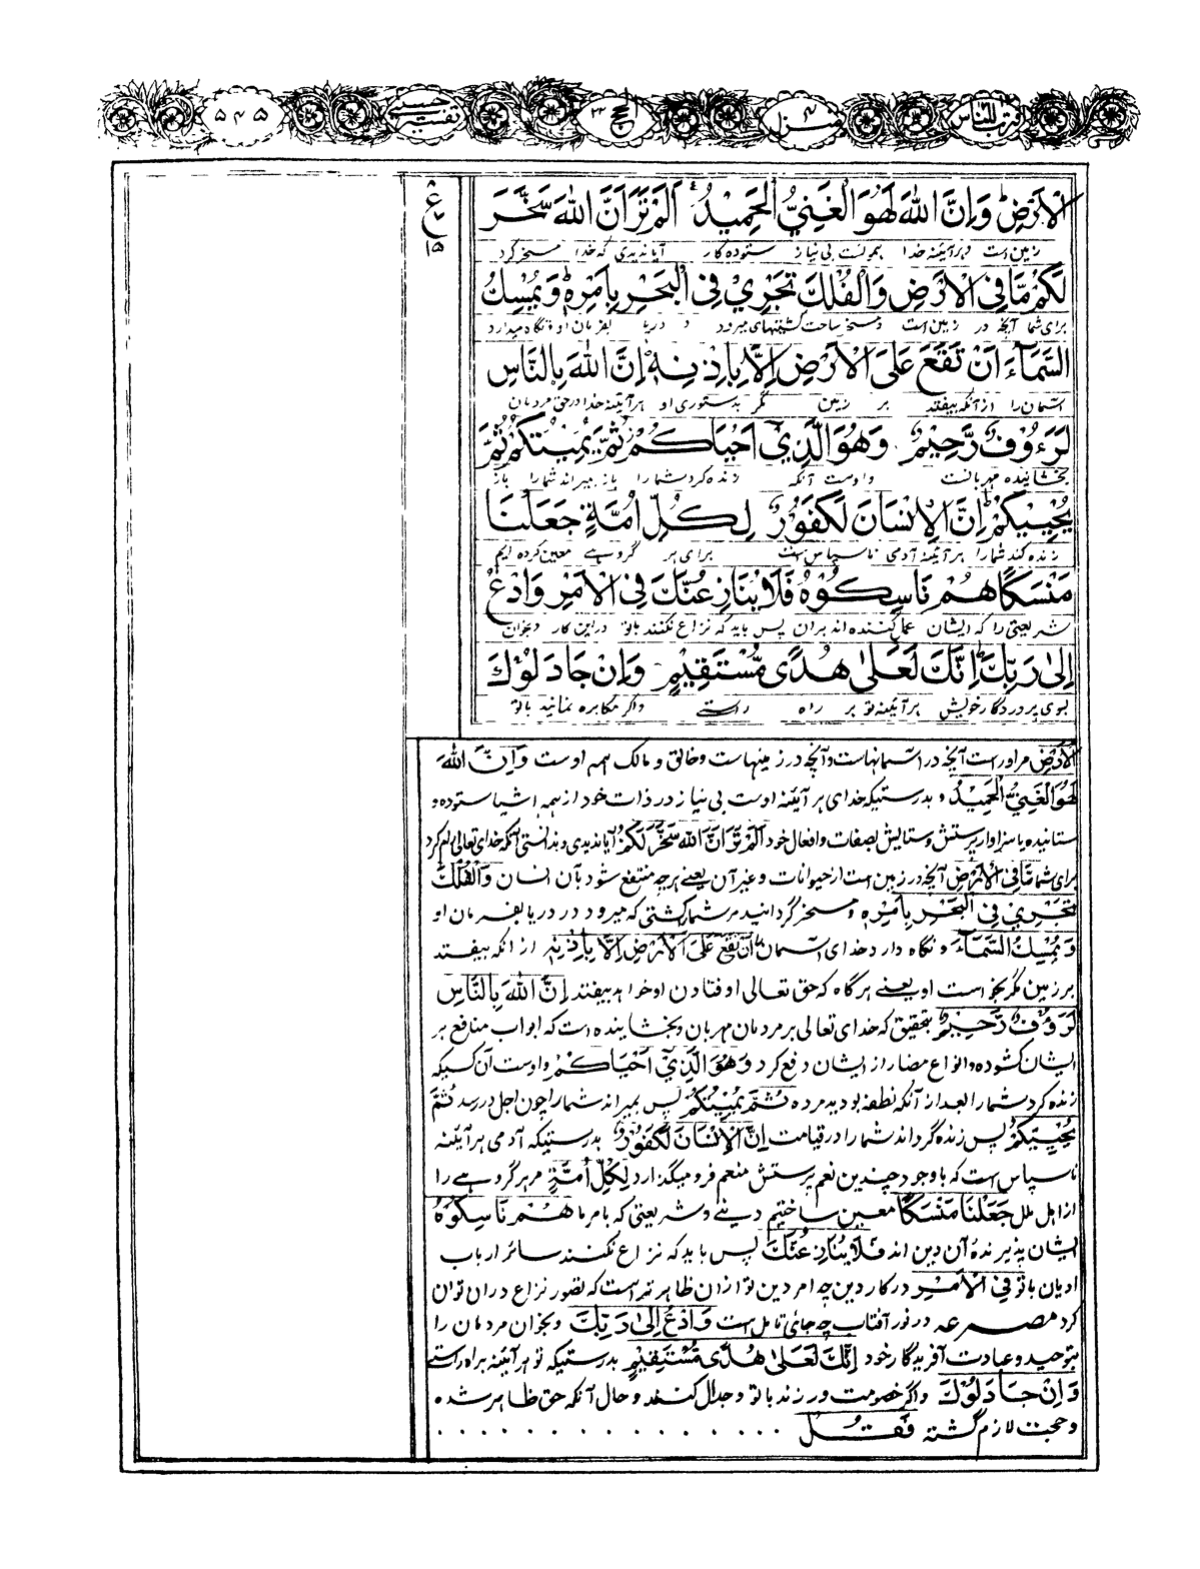 اقترب للناس ۱۷ منزل ۴ الحج ۲۲ تفسیر حسینی ۵۴۵
الْاَرْضِ وَاِنَّ اللّٰهَ لَهُوَ الْغَنِيُّ الْحَمِيْدُ اَلَمْ تَرَ اَنَّ اللّٰهَ سَخَّرَ
ع
۱۵
زمین است و هر آئینه خدا همونست بی نیاز ستوده کار آیا ندیدی که خدا مسخر کرد
لَكُمْ مَّا فِي الْاَرْضِ وَالْفُلْكَ تَجْرِيْ فِي الْبَحْرِ بِاَمْرِهٖ وَيُمْسِكُ
برای شما آنچه در زمین است و مسخر ساخت کشتیهای میرود در دریا بفرمان او و نگاه میدارد
السَّمَآءَ اَنْ تَقَعَ عَلَى الْاَرْضِ اِلَّا بِاِذْنِهٖ اِنَّ اللّٰهَ بِالنَّاسِ
آسمان را از آنکه بیفتد بر زمین مگر بدستوری او هر آئینه خدا در حق مردمان
لَرَءُوْفٌ رَّحِيْمٌ وَهُوَ الَّذِيْٓ اَحْيَاكُمْ ثُمَّ يُمِيْتُكُمْ ثُمَّ
بخشاینده مهربانست و اوست آنکه زنده کرد شما را باز بمیراند شما را باز
يُحْيِيْكُمْ اِنَّ الْاِنْسَانَ لَكَفُوْرٌ لِكُلِّ اُمَّةٍ جَعَلْنَا
زنده کند شما را هر آئینه آدمی ناسپاس است برای هر گروهے معین کرده ایم
مَنْسَكًا هُمْ نَاسِكُوْهُ فَلَا يُنَازِعُنَّكَ فِي الْاَمْرِ وَادْعُ
شریعتی را که ایشان عمل کننده اند بران پس باید که نزاع نکنند باتو درین کار و بخوان
اِلٰى رَبِّكَ اِنَّكَ لَعَلٰى هُدًى مُّسْتَقِيْمٍ وَاِنْ جَادَلُوْكَ
بسوی پروردگار خویش هر آئینه تو بر راه راستے و اگر مکابره نمایند باتو
الْاَرْضِ مر اوراست آنچه در آسمانهاست و آنچه در زمینهاست و خالق و مالک همه اوست وَاِنَّ اللّٰهَ
لَهُوَ الْغَنِيُّ الْحَمِيْدُ و بدرستیکه خدای هر آئینه اوست بی نیاز در ذات خود از همه اشیا ستوده و
ستانیده یا سزاوار پرستش و ستایش بصفات و افعال خود اَلَمْ تَرَ اَنَّ اللّٰهَ سَخَّرَ لَكُمْ آیا ندیدی و ندانستی آنکه خدای تعالی رام کرد
برای شما مَّا فِي الْاَرْضِ آنچه در زمین است از حیوانات و غیر آن یعنے هرچه منتفع شود بآن انسان وَالْفُلْكَ
تَجْرِيْ فِي الْبَحْرِ بِاَمْرِهٖ و مسخر گردانید مر شما را کشتی که میرود در دریا بفرمان او
وَيُمْسِكُ السَّمَآءَ و نگاه دارد خدای آسمان را اَنْ تَقَعَ عَلَى الْاَرْضِ اِلَّا بِاِذْنِهٖ از آنکه بیفتد
بر زمین مگر بخواست او یعنے هرگاه که حق تعالی افتادن او خواهد بیفتد اِنَّ اللّٰهَ بِالنَّاسِ
لَرَءُوْفٌ رَّحِيْمٌ بتحقیق که خدای تعالی بر مردمان مهربان و بخشاینده است که ابواب منافع بر
ایشان کشوده و انواع مضار از ایشان دفع کرد وَهُوَ الَّذِيْٓ اَحْيَاكُمْ و اوست آن کسیکه
زنده کرد شما را بعد از آنکه نطفه بودید مرده ثُمَّ يُمِيْتُكُمْ پس بمیراند شما را چون اجل در رسد ثُمَّ
يُحْيِيْكُمْ پس زنده گرداند شما را در قیامت اِنَّ الْاِنْسَانَ لَكَفُوْرٌ بدرستیکه آدمی هر آئینه
ناسپاس است که با وجود چندین نعم پرستش منعم فرو میگذارد لِكُلِّ اُمَّةٍ مر هر گروهے را
از اهل ملل جَعَلْنَا مَنْسَكًا معین ساختیم دینے و شریعتی که بامر ما هُمْ نَاسِكُوْهُ
ایشان پذیرنده آن دین اند فَلَا يُنَازِعُنَّكَ پس باید که نزاع نکنند سائر ارباب
ادیان باتو فِي الْاَمْرِ در کار دین چه امر دین تو ازان ظاهر تر است که تصور نزاع دران توان
کرد مصرعه در نور آفتاب چه جائ تامل است وَادْعُ اِلٰى رَبِّكَ و بخوان مردمان را
بتوحید و عبادت آفریدگار خود اِنَّكَ لَعَلٰى هُدًى مُّسْتَقِيْمٍ بدرستیکه تو هر آئینه بر راه راستے
وَاِنْ جَادَلُوْكَ و اگر خصومت ورزند باتو و جدال کنند و حال آنکه حق ظاهر شده
و حجت لازم گشته فَقُلِ . . . . . . . . . . . . .